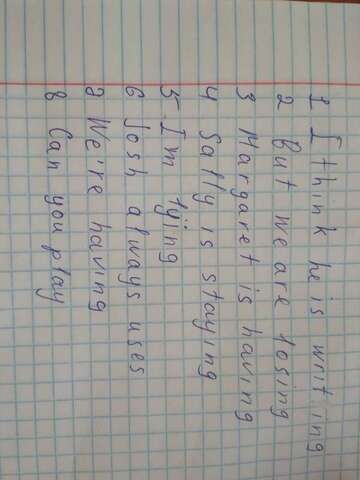 1 I think he is writing
2 But we are losing
3 Margaret is having
4 Sally is staying
5 Im tying
6 Josh always uses
7 We're having
8 Can you play